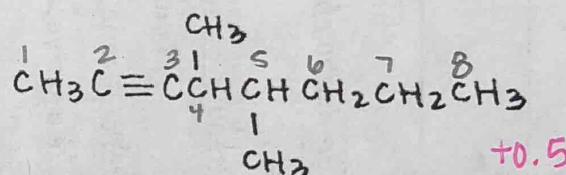 CH3
1 2 3 5 6 7 8
CH3C≡CCHCHCH2CH2CH3
4
CH3
+0.5